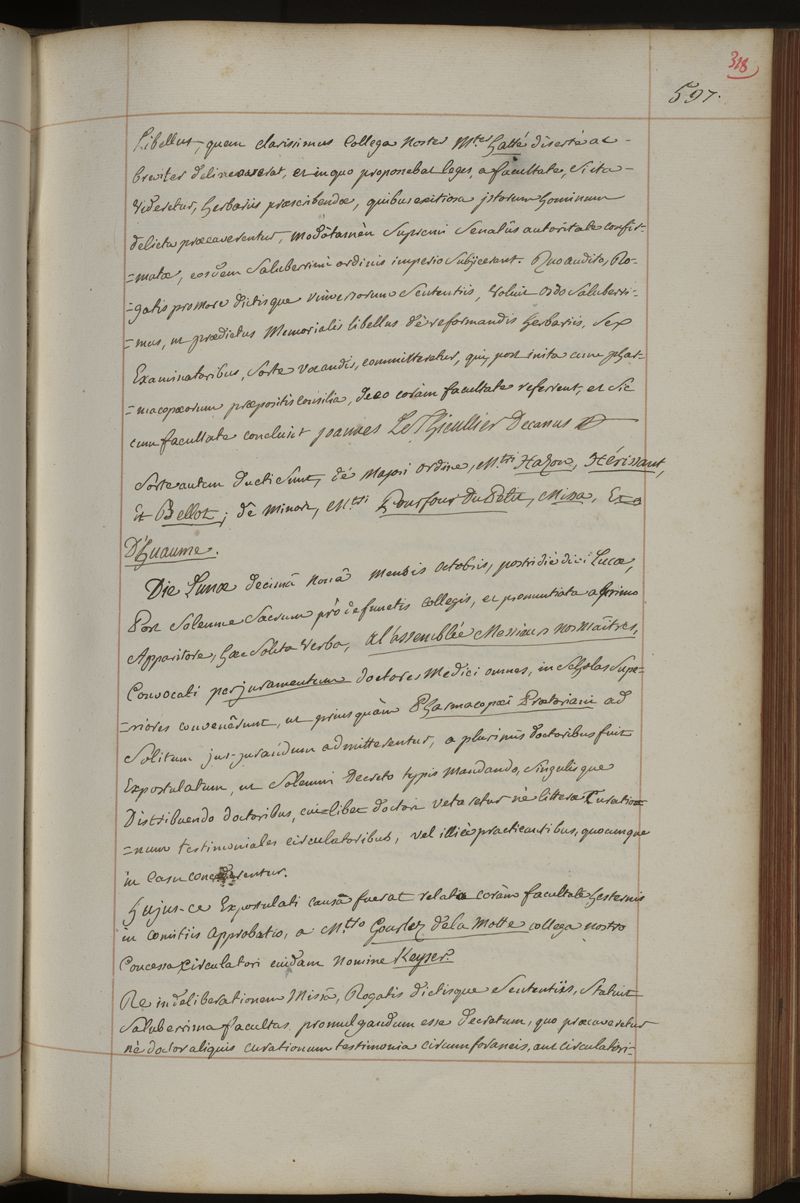 318
597.
Libellus, quem clarissimus Collega noster M.ter Gallé disertè ac
breviter delineaverat, et in quo proponebat leges, a facultate, si ita
videretur, herbariis præscribendæ, quibus exitiosa istorum hominum
delicta præcaverentur, modò tamen Supremi Senatûs autoritate confir-
=matæ, eosdem Saluberrimi ordinis imperio Subjicerent. Quo audito, Ro-
=gatis pro more dictisque universorum Sententiis, voluit Ordo Saluberri-
=mus, ut prædictus Memorialis libellus de reformandis herbariis, Sex
Examinatoribus, Sorte vocandis, committeretur, qui, post inita cum phar-
=macopæorum præpositis consilia, de eo coràm facultate referrent, et Sic
cum facultate conclusit Joannes Le Thieullier Decanus
Sorte autem ducti Sunt, de Majori ordine, M.tri Hazon, Hérissant,
Et Bellot; de Minori, M.tri Pourfour Du Petit, Missa, Et
D'huaume.
Die Lunæ decimâ nonâ mensis octobris, postridie divi Lucæ,
Post Solemne Sacrum pro defunctis collegis, et pronuntiata a primo
Apparitore, hæc Solita verba, a l'assemblée Messieurs nos maîtres,
Convocati per juramentum doctores Medici omnes, in Scholas Supe-
=riores convenêrunt, ut priusquàm Pharmacopæi Prætoriani ad
Solitum jus-jurandum admitterentur, a plurimis doctoribus fuit
Expostulatum, ut Solemni Decreto typis mandando, Singulisque
Distribuendo doctoribus, cuilibet doctori vetaretur ne litteræ Curatio-
=num testimoniales circulatoribus, vel illicite practicantibus, quocumque
in Casu concederentur.
Hujus-ce Expostulati causâ fuerat relata coràm facultate hesternis
in comitiis Approbatio, a M.tro Gourlez de la Motte collega nostro
Concessa Circulatori cuidam nomine Keyser.
Re in deliberationem Missâ, Rogatis dictisque Sententiis, Statuit
Saluberrima facultas promulgandum esse decretum, quo præcaveretur
nè doctor aliquis curationum testimonia circumforaneis, aut circulatori-